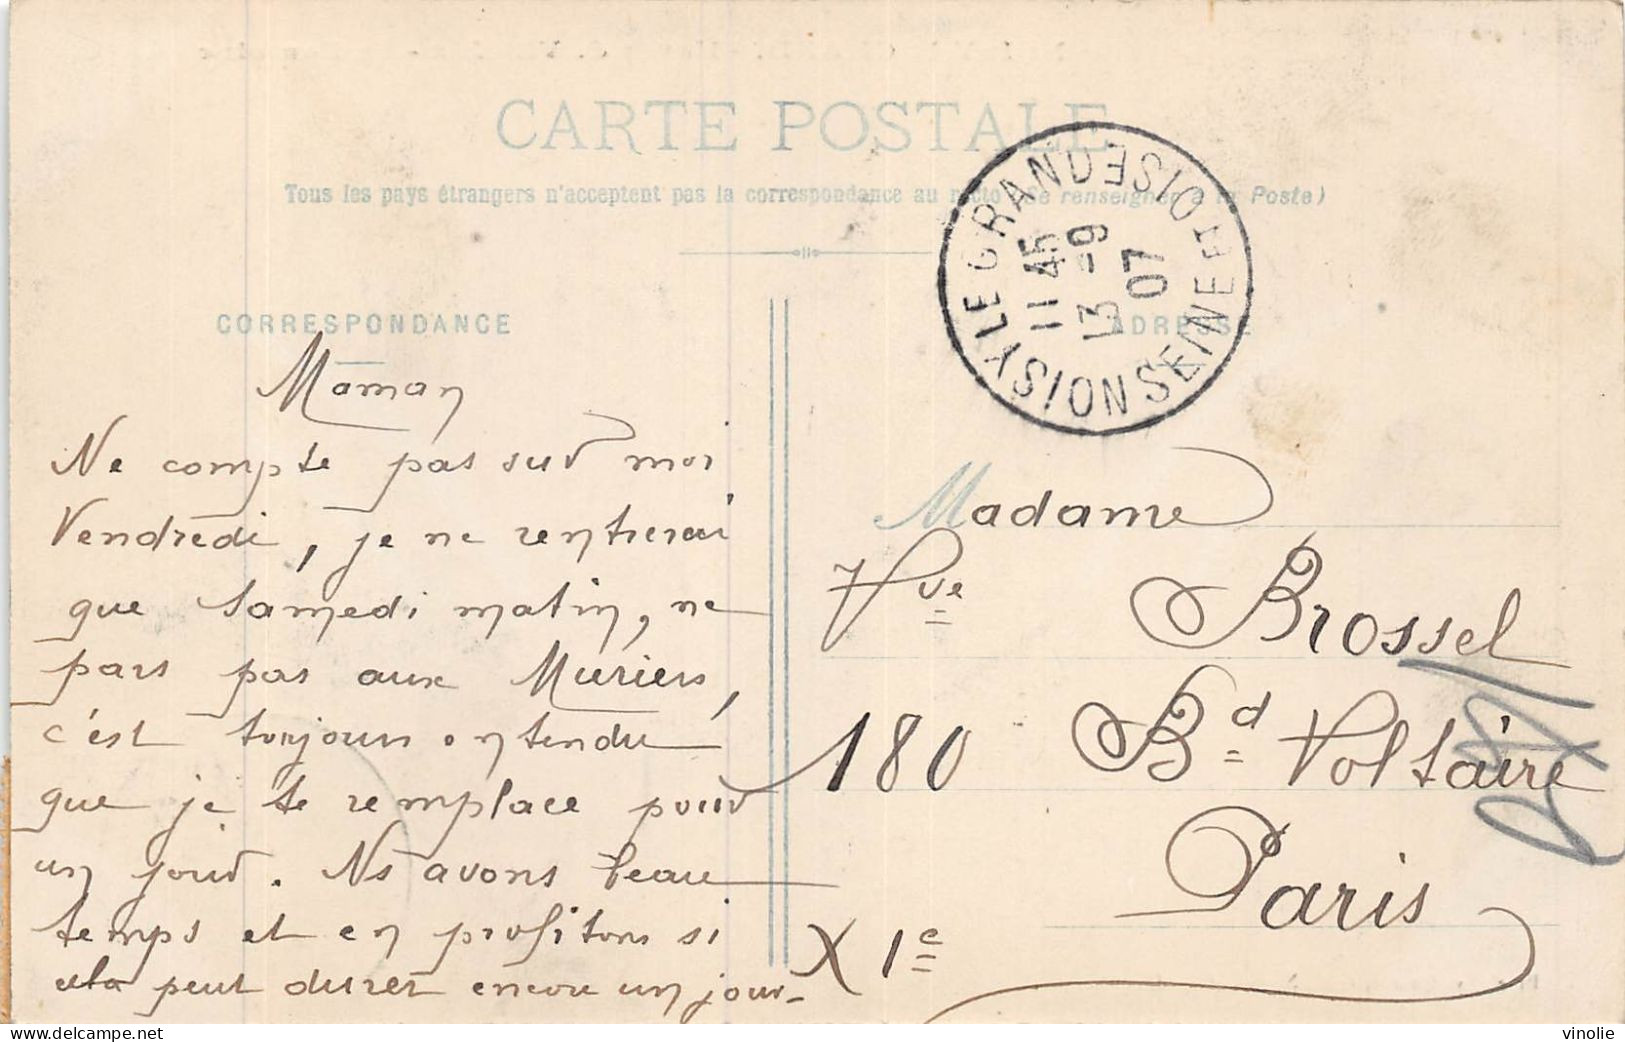 CARTE POSTALE
Tous les pays étrangers n'acceptent pas la correspondance au recto (Se renseigner à la Poste)
CORRESPONDANCE
ADRESSE
NOISY LE GRAND SEINE ET OISE
11 45
13 - 9
07
Maman
Ne compte pas sur moi
Vendredi, je ne rentrerai
que Samedi matin, ne
pars pas aux Muriers,
c'est toujours entendu
que je te remplace pour
un jour. Ns avons beau
temps et en profitons si
cela peut durer encore un jour-
Madame
Vve Brossel
180 Bd Voltaire
Paris
XIe
vinolie